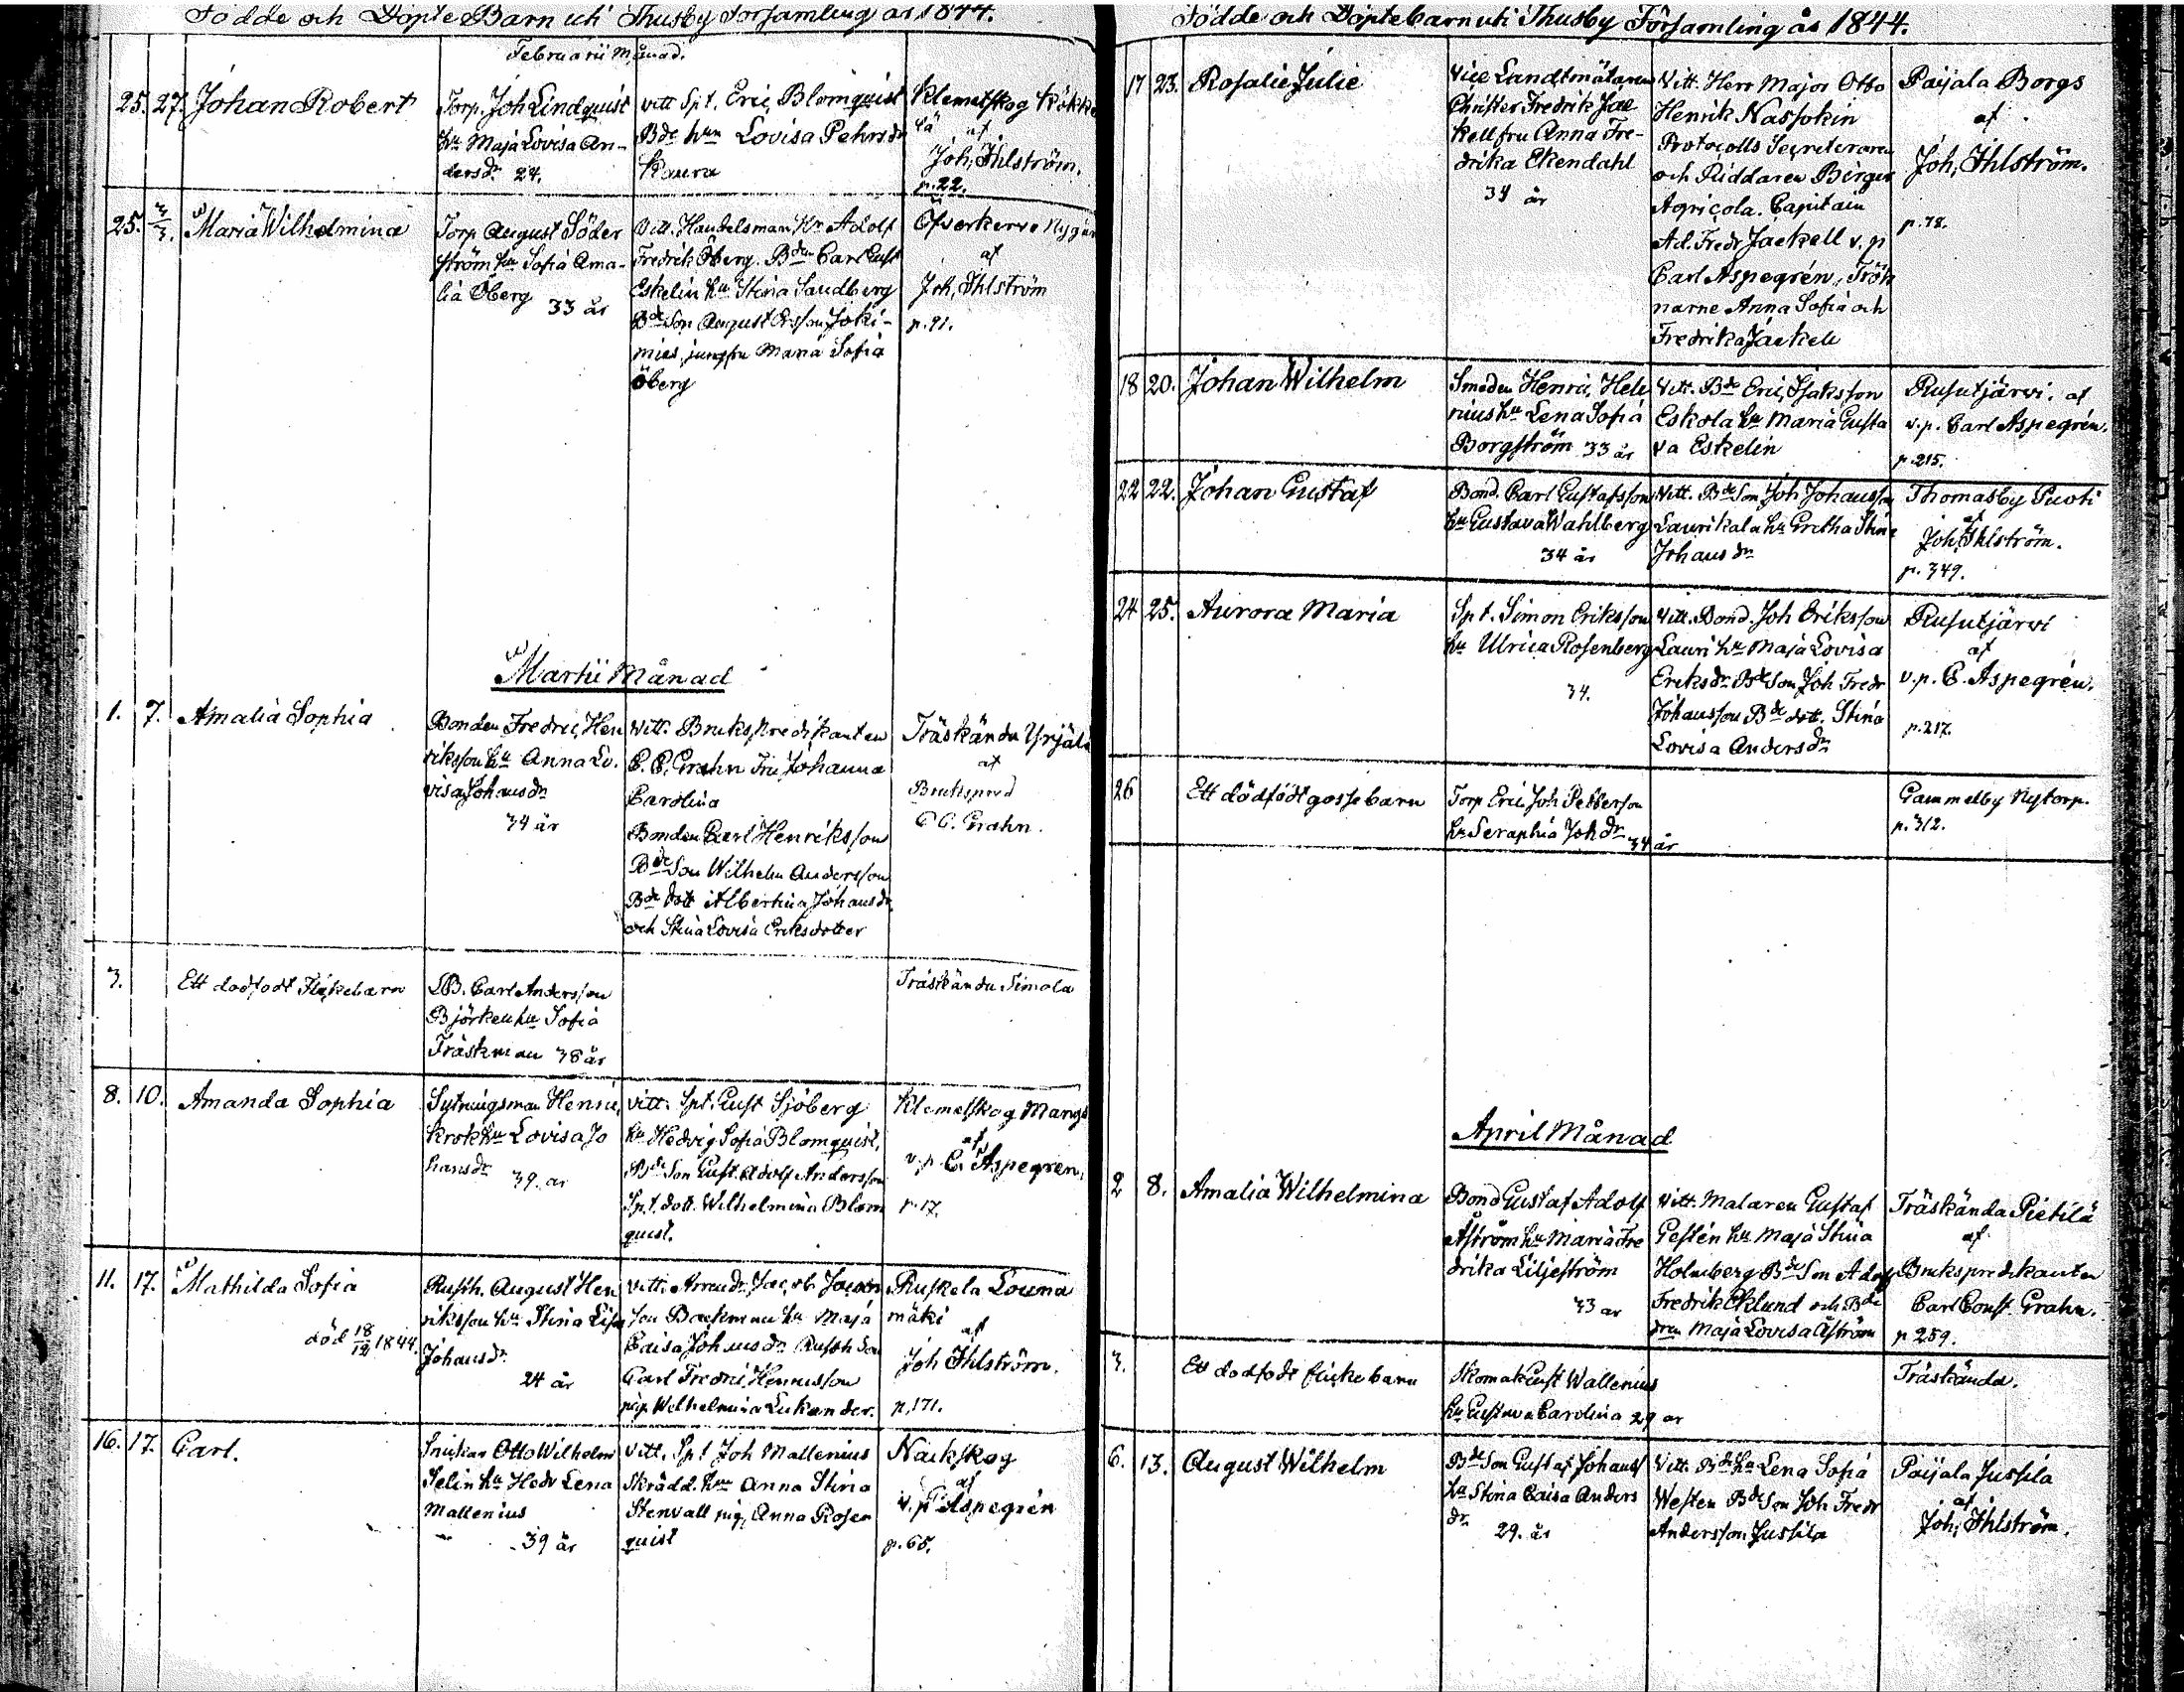 Födde och Döpte Barn uti Thusby Församling år 1844.
Februarii Månad.
25. 27. Johan Robert
Torp. Joh Lindquist
hu Maja Lovisa An-
dersdr. 24.
vitt Spt. Eric Blomquist
Bde hun Lovisa Pehrsdr
Kaura
Klemetskog Kökke
lä af
Joh, Ihlström.
p. 22.
25. 3/3. Maria Wilhelmina
Torp August Söder
ström hu Sofia Ama-
lia Öberg 33 år
Vitt. Handelsman Hr Adolf
Fredrik Öberg. Bden Carl Gust
Eskelin hu Stina Sandberg
Bde Son August Ersson Joki-
mies, jungfru Maria Sofia
Öberg
Ofverkervo Nygår
af
Joh, Ihlström
p. 91.
Martii Månad
1. 7. Amalia Sophia
Bonden Fredric Hen
riksson hu Anna Lo.
visa Johansdr
34 år
Vitt. Brukspredikanten
C. C. Grahn Fru Johanna
Carolina
Bonden Carl Henriksson
Bde Son Wilhelm Andersson
Bde dott Albertina Johansdr.
och Stina Lovisa Eriksdotter
Träskända Yrjälä
af
Brukspred
C C. Grahn.
3. Ett dödfödt Flickebarn
LB. Carl Andersson
Björken hu Sofia
Träskman 38 år
Träskända Simola
8. 10. Amanda Sophia
Sytningsman Henric
Krok hu Lovisa Jo
hansdr 39. år
Vitt. Spt. Gust Sjöberg
hu Hedvig Sofia Blomquist,
Bde Son Gust. Adolf Andersson
Spt. dott. Wilhelmina Blom
quist.
Klemetskog Mangs
af
v. p. C. Aspegren,
p. 17.
11. 17. Mathilda Sofia
död 18/12 1844.
Rusth. August Hen
riksson hu Stina Lisa
Johansdr.
24 år
Vitt. Arrendr Jacob Jacobs
son Backman hu Maja
Caisa Johansdr Rusth Son
Carl Fredric Henricsson
pig. Wilhelmina Lukander.
Ruskela Louna
mäki
af
Joh Ihlström.
p. 171.
16. 17. Carl.
Snickar Otto Wilhelm
Selin hu Hedv Lena
Mallenius
39 år
Vitt. Spt Joh Mallenius
Skrädd. hu Anna Stina
Stenvall pig, Anna Rosen
quist
Nackskog
af
v. p. Aspegrén
p. 65.
Födde och Döpte barn uti Thusby Församling år 1844.
17 23. Rosalie Julie
Vice Landtmätaren
Christer Fredrik Jae
kell fru Anna Fre-
drika Ekendahl
34 år
Vitt. Herr Major Otto
Henrik Nassokin
Protocolls Secreteraren
och Riddaren Birger
Agricola. Capitain
Ad. Fredr Jaekell v. p
Carl Aspegrén, Frök
narne Anna Sofia och
Fredrika Jaekell
Paijala Borgs
af
Joh, Ihlström.
p. 78.
18 20. Johan Wilhelm
Smeden Henric Hele
nius hu Lena Sofia
Borgström 33 år
Vitt. Bde Eric Isaksson
Eskola hu Maria Gusta
va Eskelin
Rusutjärvi. af
v. p. Carl Aspegrén.
p. 215.
22 22. Johan Gustaf
Bond. Carl Gustafsson
hu Gustava Wahlberg
34 år
Vitt. Bde Son Joh Johansson
Laurikala hu Gretha Stina
Johansdr
Thomasby Puoti
af
Joh, Ihlström.
p. 349.
24 25. Aurora Maria
Spt. Simon Eriksson
hu Ulrica Rosenberg
34.
Vitt. Bond. Joh Eriksson
Lauri hu Maja Lovisa
Eriksdr. Bde Son Joh Fredr
Johansson Bde dott. Stina
Lovisa Andersdr
Rusutjärvi
af
v. p. C. Aspegrén.
p. 217.
26 Ett dödfödt gossebarn
Torp Eric Joh Petterson
hu Seraphia Joh dr 34 år
Gammelby Nytorp.
p. 312.
April Månad
2 8. Amalia Wilhelmina
Bond Gustaf Adolf
Åström hu Maria Fre
drika Liljeström
33 år
Vitt. Målaren Gustaf
Gestén hu Maja Stina
Holmberg Bde Son Adolf
Fredrik Eklund och Bde
dren Maja Lovisa Åström
Träskända Pietilä
af
Brukspredikanten
Carl Const. Grahn.
p 259.
3. Ett dödfödt flickebarn
Skomak Gust Wallenius
hu Gustava Carolina 29 år
Träskända.
6. 13. August Wilhelm
Bde Son Gustaf Johanss
hu Stina Caisa Anders
dr. 29. år
Vitt. Bde hu Lena Sofia
Westen Bde Son Joh Fredr
Andersson Jussila
Paijala Jussila
af
Joh, Ihlström.